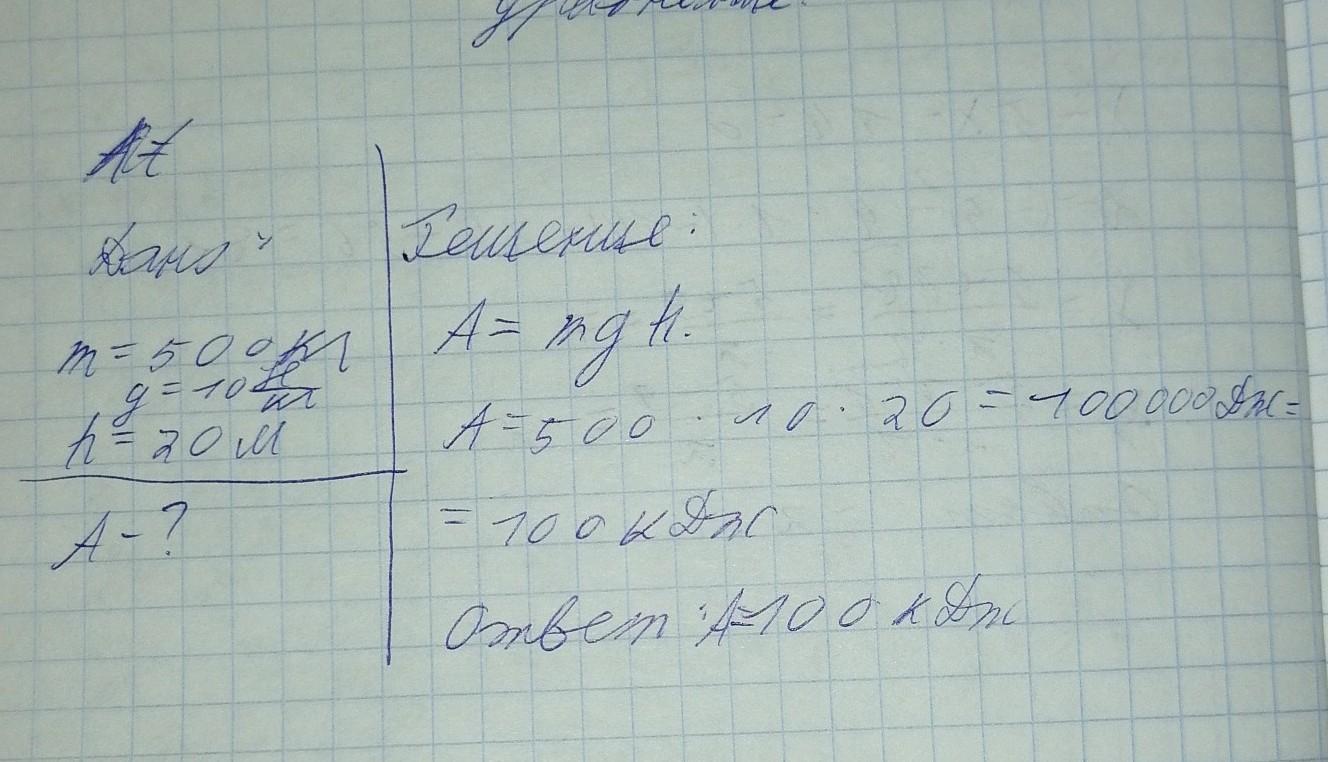 Дано:
m = 500 кг
g = 10 Н/кг
h = 20 м
A - ?
Решение:
A = mgh.
A = 500 · 10 · 20 = 100000 Дж =
= 100 кДж
Ответ: A=100 кДж